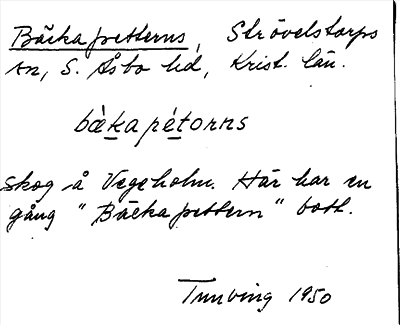 Bäckapetterns, Strövelstorps
sn, S. Åsbo hd, Krist. län.
bàkapétorns
Skog å Vegeholm. Här har en
gång "Bäckapettern" bott.
Tunving 1950